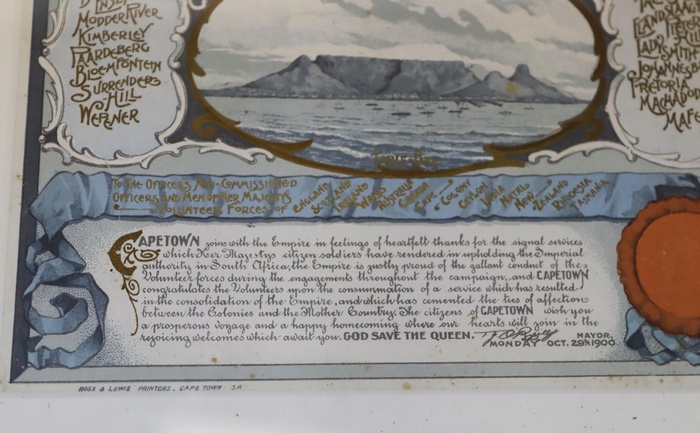 Modder River
Kimberley
Paardeberg
Bloemfontein
Surrenders
Hill
Wepener
Elandslaagte
Ladysmith
Johannesburg
Pretoria
Machadodorp
Table Bay
To the Officers, Non-Commissioned
Officers and Men of Her Majesty's
Volunteer Forces of
England
Scotland
Ireland
Wales
Australia
Canada
Cape Colony
Ceylon
India
Natal
New Zealand
Rhodesia
Tasmania
CAPETOWN joins with the Empire in feelings of heartfelt thanks for the signal services
which Her Majestys citizen soldiers have rendered in upholding the Imperial
authority in South Africa, the Empire is justly proud of the gallant conduct of the
Volunteer forces during the engagements throughout the campaign, and CAPETOWN
congratulates the Volunteers upon the consummation of a service which has resulted
in the consolidation of the Empire, and which has cemented the ties of affection
between the Colonies and the Mother Country. The citizens of CAPETOWN wish you
a prosperous voyage and a happy homecoming where our hearts will join in the
rejoicing welcomes which await you. GOD SAVE THE QUEEN. MAYOR.
MONDAY OCT. 29th 1900.
ROSS & LEWIS PRINTERS, CAPE TOWN S.A